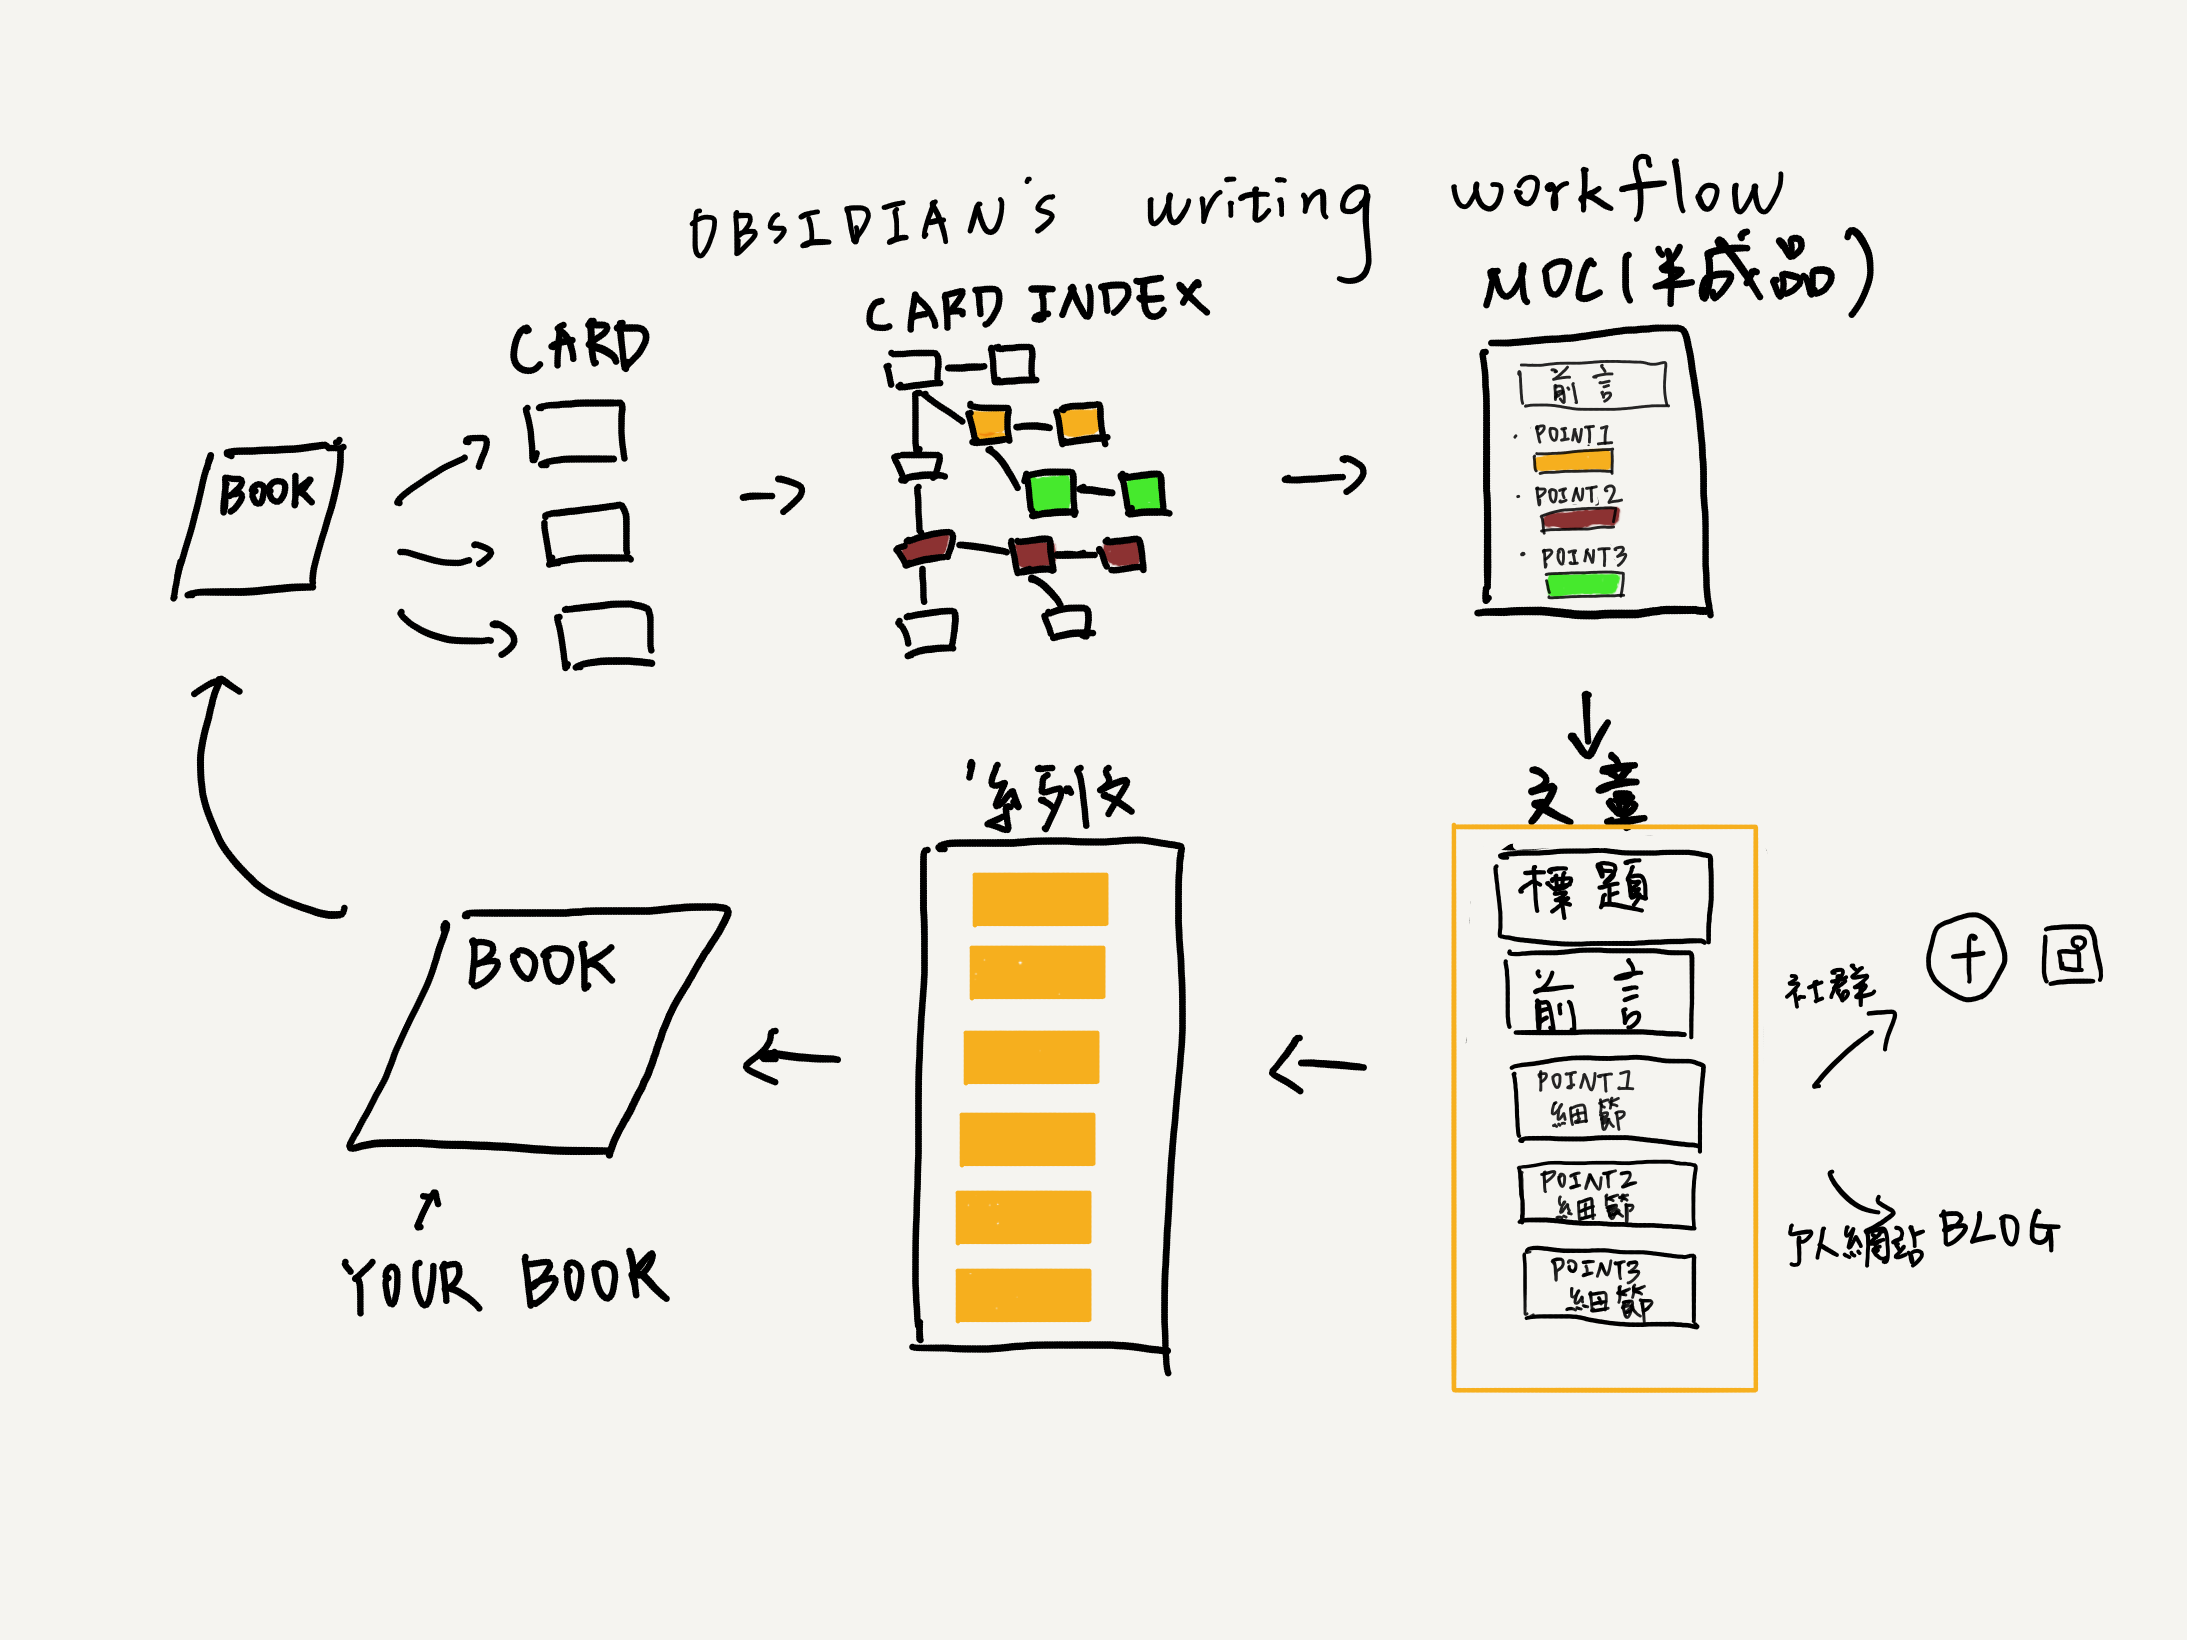 OBSIDIAN's writing workflow
CARD
CARD INDEX
MOC(半成品)
BOOK
前言
· POINT1
· POINT2
· POINT3
文章
標題
前言
POINT1
細節
POINT2
細節
POINT3
細節
社群
f
個人網站 BLOG
系列文
BOOK
YOUR BOOK